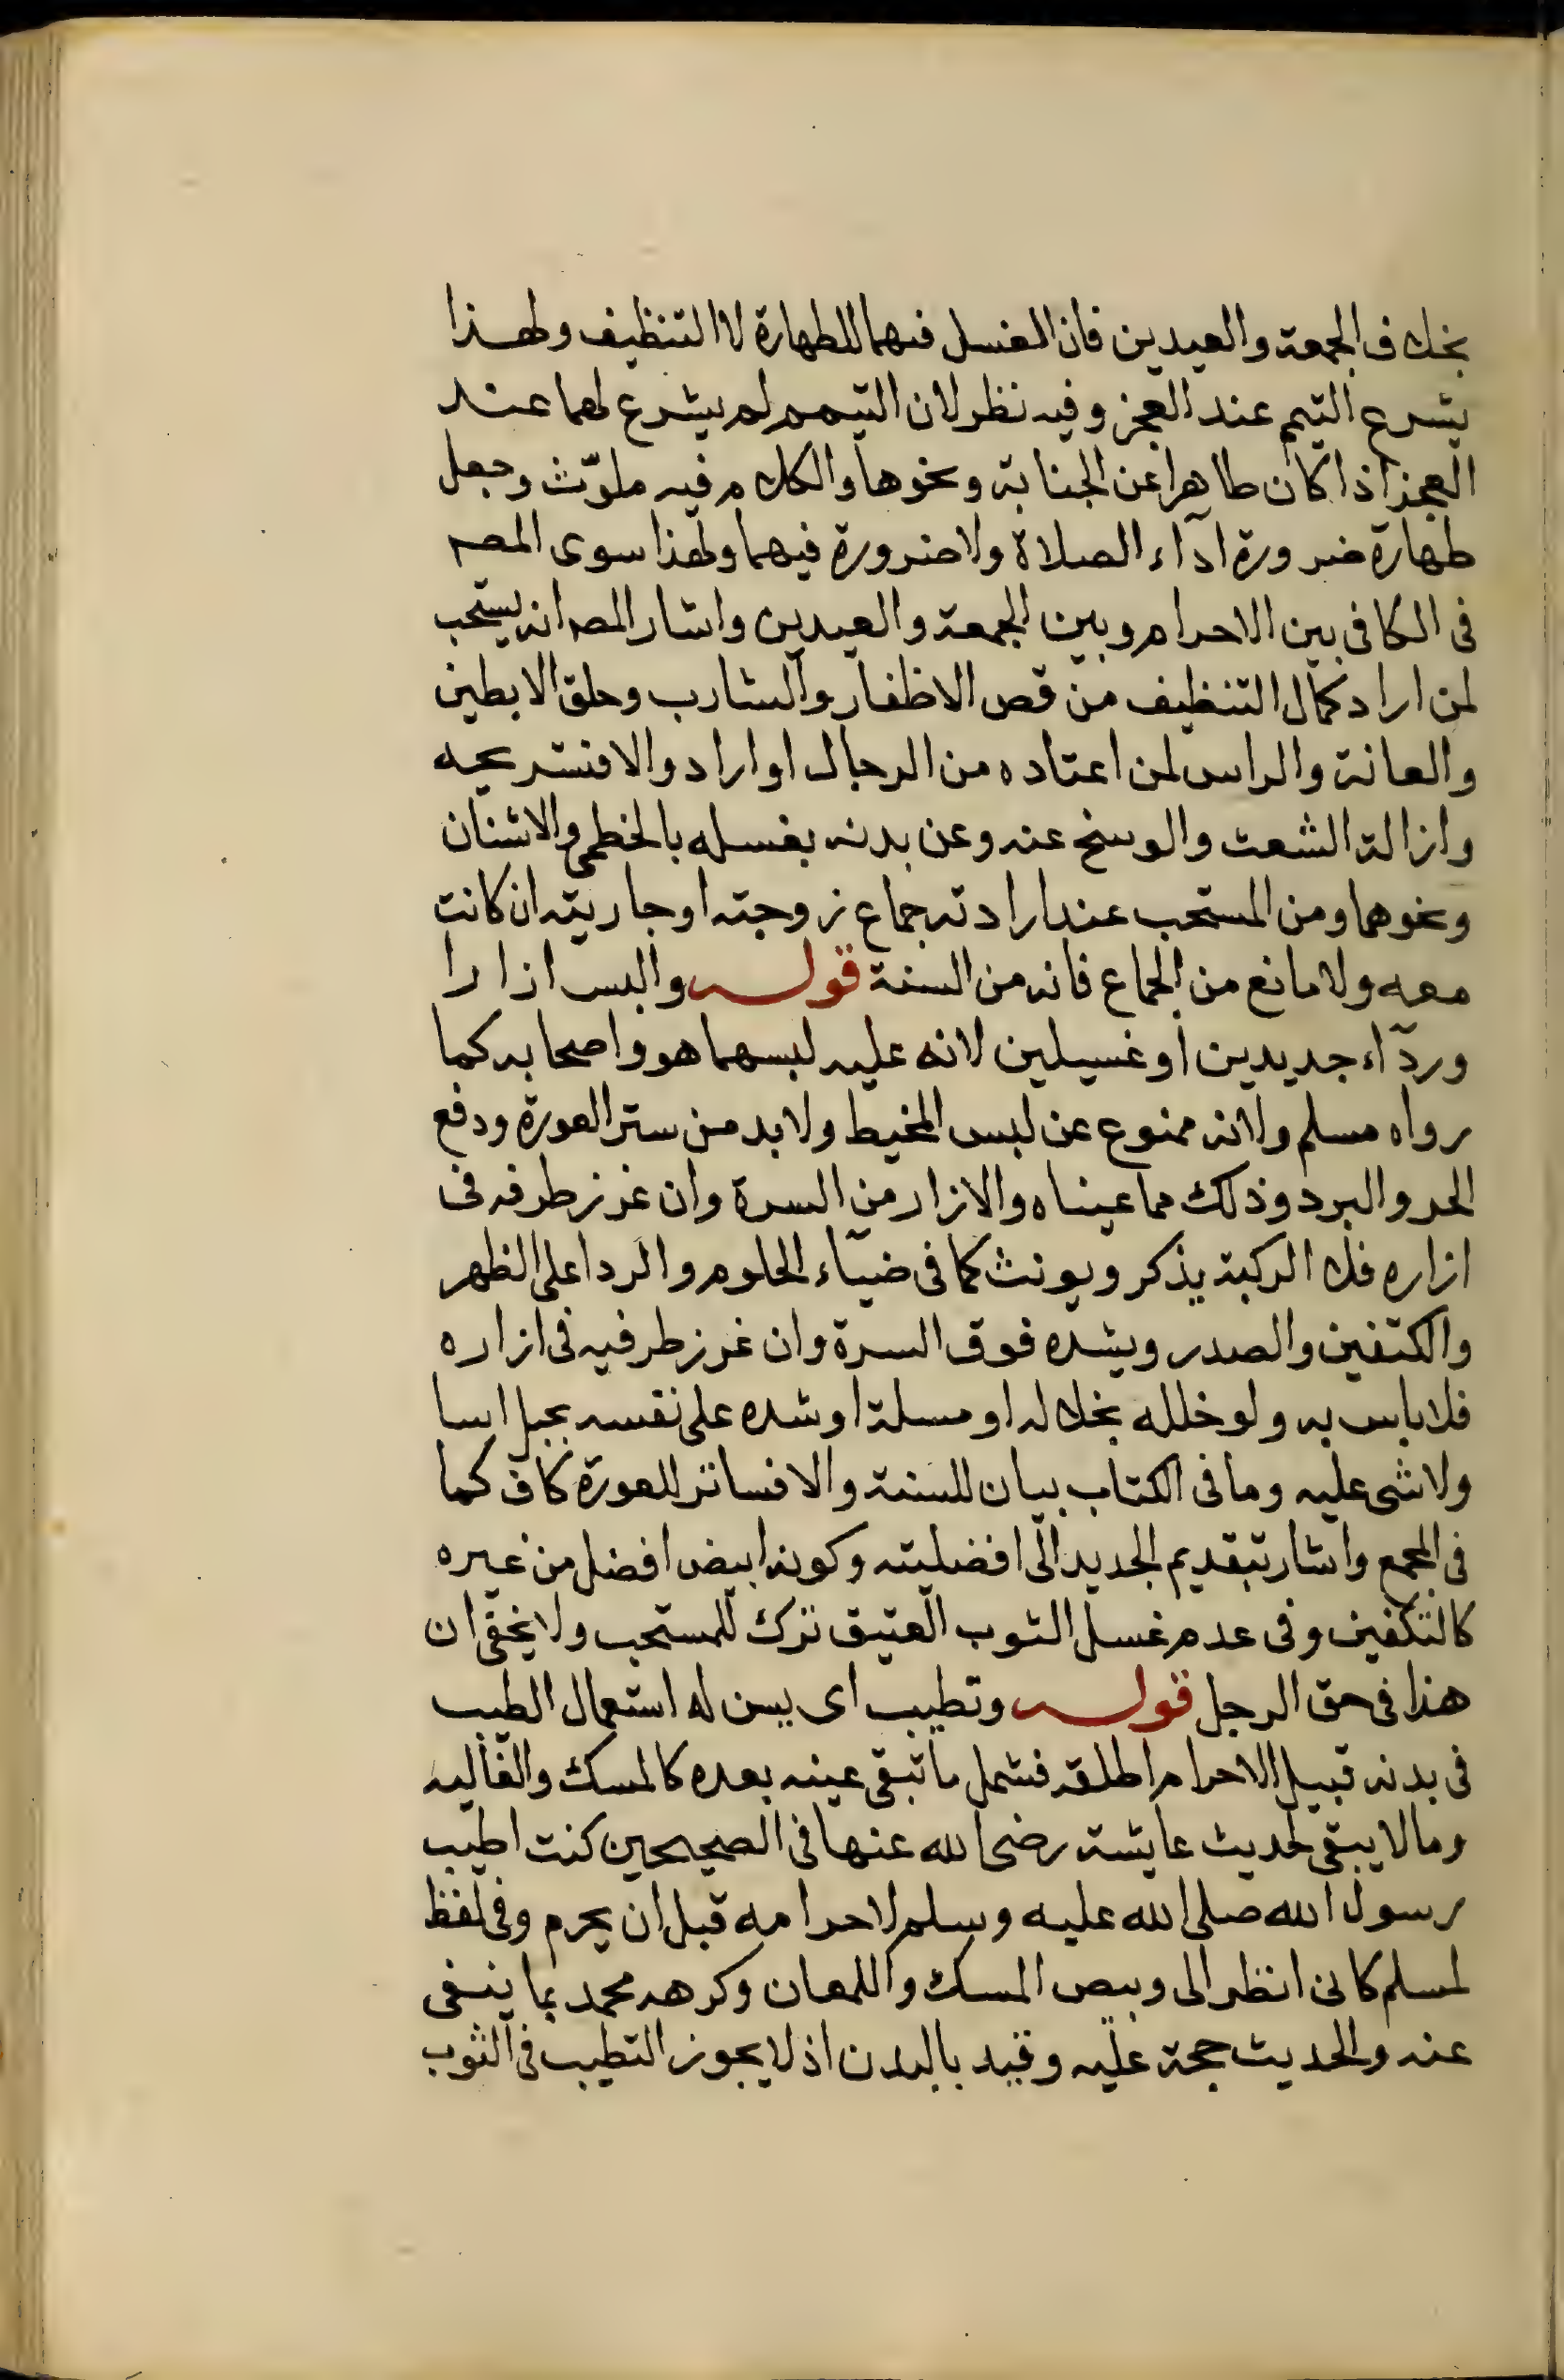 بخلاف الجمعة والعيدين فان الغسل فيهما للطهارة لا التنظيف ولهذا
يشرع التيمم عند العجز وفيه نظر لان التيمم لم يشرع لهما عند
العجز اذا كان طاهرا عن الجنابة ونحوها والكلام فيه ملوّث وجعل
طهارة ضرورة اداء الصلاة ولا ضرورة فيهما ولهذا سوى المصـ
فى الكافى بين الاحرام وبين الجمعة والعيدين واشار المصـ انه يستحب
لمن اراد كمال التنظيف من قص الاظفار والشارب وحلق الابطين
والعانة والراس لمن اعتاده من الرجال او اراد والا فتسريحه
وازالة الشعث والوسخ عنه وعن بدنه بغسله بالخطمى والاشنان
ونحوهما ومن المستحب عند ارادته جماع زوجته او جاريته ان كانت
معه ولا مانع من الجماع فانه من السنة قوله والبس ازارا
ورداء جديدين او غسيلين لانه عليه لبسهما هو واصحابه كما
رواه مسلم ولانه ممنوع عن لبس المخيط ولا بد من ستر العورة ودفع
الحر والبرد وذلك مما عيناه والازار من السرة وان غرز طرفه فى
ازاره فلا الركبة يذكر ويونث كما فى ضياء الحلوم والردا على الظهر
والكتفين والصدر ويشده فوق السرة وان غرز طرفيه فى ازاره
فلا باس به ولو خلله بخلال او مسلة او شده على نفسه بحبل اسا
ولا شى عليه وما فى الكتاب بيان للسنة والا فساتر للعورة كاف كما
فى المجمع واشار بتقديم الجديد الى افضليته وكونه ابيض افضل من غيره
كالتكفين وفى عدم غسل الثوب العتيق ترك للمستحب ولا يخفى ان
هذا فى حق الرجل قوله وتطيب اى يسن له استعمال الطيب
فى بدنه قبيل الاحرام اطلقه فشمل ما تبقى عينه بعده كالمسك والغاليه
وما لا يبقى لحديث عايشة رضى الله عنها فى الصحيحين كنت اطيب
رسول الله صلى الله عليه وسلم لاحرامه قبل ان يحرم وفى لفظ
لمسلم كانى انظر الى وبيص المسك واللمعان وكرهه محمد بما ينفى
عنه والحديث حجة عليه وقيد بالبدن اذ لا يجوز التطيب فى الثوب